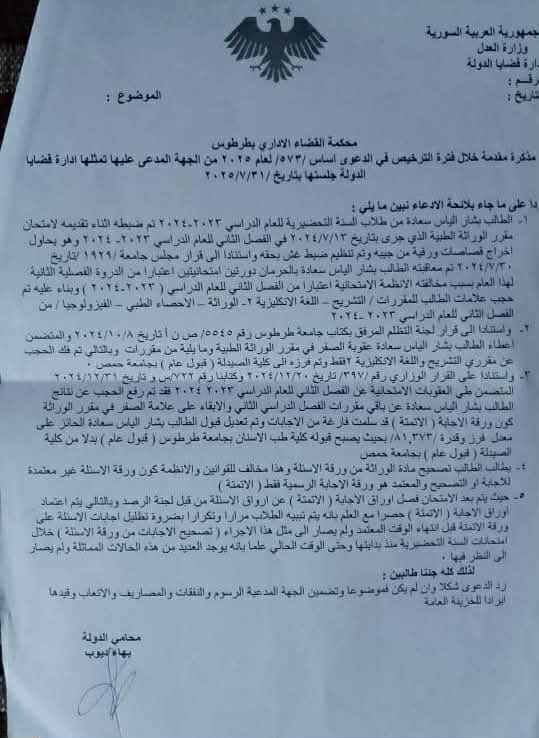 جمهورية العربية السورية
وزارة العدل
ادارة قضايا الدولة
رقم :
تاريخ :
الموضوع :
محكمة القضاء الاداري بطرطوس
مذكرة مقدمة خلال فترة الترخيص في الدعوى اساس /٥٧٣/ لعام ٢٠٢٥ من الجهة المدعى عليها تمثلها ادارة قضايا
الدولة جلستها بتاريخ /٢٠٢٥/٧/٣١
ردا على ما جاء بلائحة الادعاء نبين ما يلي :
١- الطالب بشار الياس سعادة من طلاب السنة التحضيرية للعام الدراسي ٢٠٢٣-٢٠٢٤ تم ضبطه اثناء تقديمه لامتحان
مقرر الوراثة الطبية الذي جرى بتاريخ ٢٠٢٤/٧/١٣ في الفصل الثاني للعام الدراسي ٢٠٢٣- ٢٠٢٤ وهو يحاول
اخراج قصاصات ورقية من جيبه وتم تنظيم ضبط غش بحقه واستنادا الى قرار مجلس جامعة /١٩٢٩/ تاريخ
٢٠٢٤/٧/٣٠ تم معاقبته الطالب بشار الياس سعادة بالحرمان دورتين امتحانيتين اعتبارا من الدروة الفصلية الثانية
لهذا العام بسبب مخالفته الانظمة الامتحانية اعتبارا من الفصل الثاني للعام الدراسي ( ٢٠٢٣-٢٠٢٤ ) وبناء عليه تم
حجب علامات الطالب للمقررات / التشريح – اللغة الانكليزية ٢- الوراثة – الاحصاء الطبي – الفيزيولوجيا / من
الفصل الثاني للعام الدراسي ٢٠٢٣-٢٠٢٤
٢- واستنادا الى قرار لجنة التظلم المرفق بكتاب جامعة طرطوس رقم /٥٥٤٥ ص ن أ تاريخ ٢٠٢٤/١٠/٨ والمتضمن
اعطاء الطالب بشار الياس سعادة عقوبة الصفر في مقرر الوراثة الطبية وما يليه من مقررات وبالتالي تم فك الحجب
عن مقرري التشريح واللغة الانكليزية ٢ فقط وتم فرزه الى كلية الصيدلة ( قبول عام ) بجامعة حمص .
٣- واستنادا على القرار الوزاري رقم /٣٩٧/ تاريخ ٢٠٢٤/١٢/٢٠ وكتابنا رقم /٧٢٢س و تاريخ ٢٠٢٤/١٢/٣١
المتضمن طي العقوبات الامتحانية عن الفصل الثاني للعام الدراسي ٢٠٢٣ ٢٠٢٤ فقد تم رفع الحجب عن نتائج
الطالب بشار الياس سعادة عن باقي مقررات الفصل الدراسي الثاني والابقاء على علامة الصفر في مقرر الوراثة
كون ورقة الاجابة ( الاتمتة ) قد سلمت فارغة من الاجابات وتم تعديل قبول الطالب بشار الياس سعادة الحائز على
معدل فرز وقدرة /٨١,٣٧٣ بحيث يصبح قبوله كلية طب الاسنان بجامعة طرطوس ( قبول عام ) بدلا من كلية
الصيدلة ( قبول عام ) بجامعة حمص
٤- يطالب الطالب تصحيح مادة الوراثة من ورقة الاسئلة وهذا مخالف للقوانين والانظمة كون ورقة الاسئلة غير معتمدة
للاجابة او التصحيح والمعتمد هو ورقة الاجابة الرسمية فقط ( الاتمتة )
٥- حيث يتم بعد الامتحان فصل اوراق الاجابة ( الاتمتة ) عن ارواق الاسئلة من قبل لجنة الرصد وبالتالي يتم اعتماد
اوراق الاجابة ( الاتمتة ) حصرا مع العلم بانه يتم تنبيه الطلاب مرارا وتكرارا بضروة تظليل اجابات الاسئلة على
ورقة الاتمتة قبل انتهاء الوقت المعتمد ولم يصار الى مثل هذا الاجراء ( تصحيح الاجابات من ورقة الاسئلة ) خلال
امتحانات السنة التحضيرية منذ بدايتها وحتى الوقت الحالي علما بانه يوجد العديد من هذه الحالات المماثلة ولم يصار
الى النظر فيها .
لذلك كله جننا طالبين :
رد الدعوى شكلا وان لم يكن فموضوعا وتضمين الجهة المدعية الرسوم والنفقات والمصاريف والاتعاب وقيدها
ايرادا للخزينة العامة
محامي الدولة
بهاء ديوب